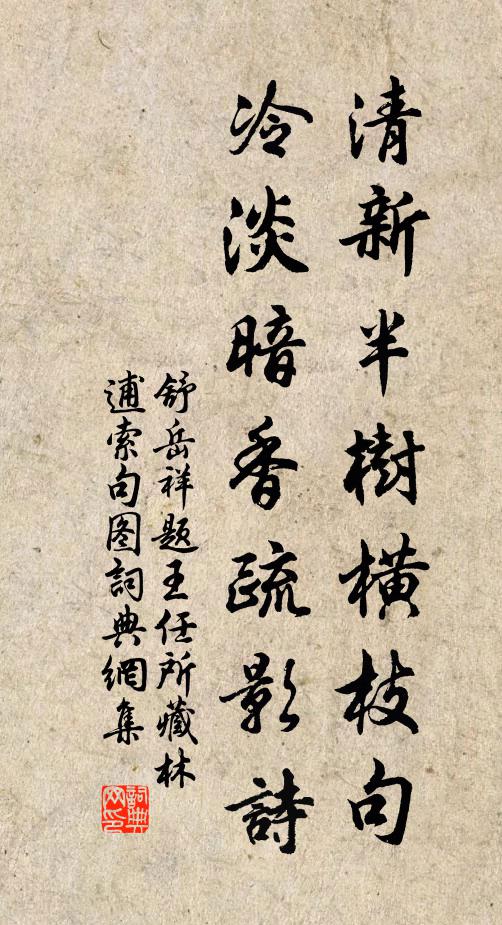 清新半樹橫枝句
冷淡暗香疏影詩
舒岳祥題王任所藏林
逋索句图詞典網集
詞典网印